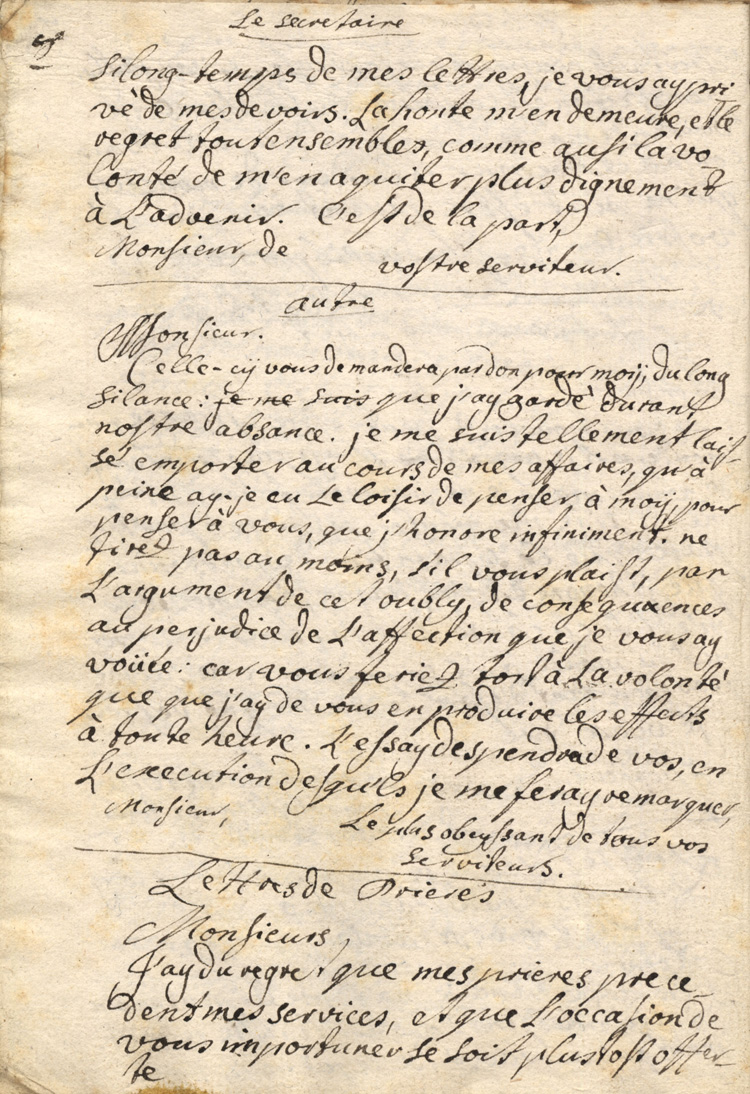 Le secretaire
silong-temps de mes lettres, je vous ay pri
vé de mes devoirs. La honte m'en demeure, et le
regret tout ensembles, comme ausi la vo
lonté de m'en aquiter plus dignement
à L'advenir. C'est de la part,
Monsieur, de
vostre serviteur.
autre
Monsieur.
Celle-cij vous demandera pardon pour moij, du long
silance: je me suis que j'ay gardé durant
nostre absance. je me suis tellement lais-
sé emporter au cours de mes affaires, qu'à
peine ay-je eu Le loisir de penser à moij, pour
penser à vous, que j'honore infiniment. ne
tirez pas au moins, s'il vous plaist, par
L'argument de cet oubly, de consequences
au perjudice de L'affection que je vous ay
voüée: car vous feriez tort à La volonté
que que j'ay de vous en produire les effects
à toute heure. L'essay despendra de vos, en
L'execution desquels je me feray remarquer,
Monsieur,
Le plus obeyssant de tous vos
serviteurs.
Lettres de Prieres
Monsieurs,
J'ay du regret que mes prieres prece
dent mes services, et que L'occasion de
vous importuner se soit plustost offer-
te